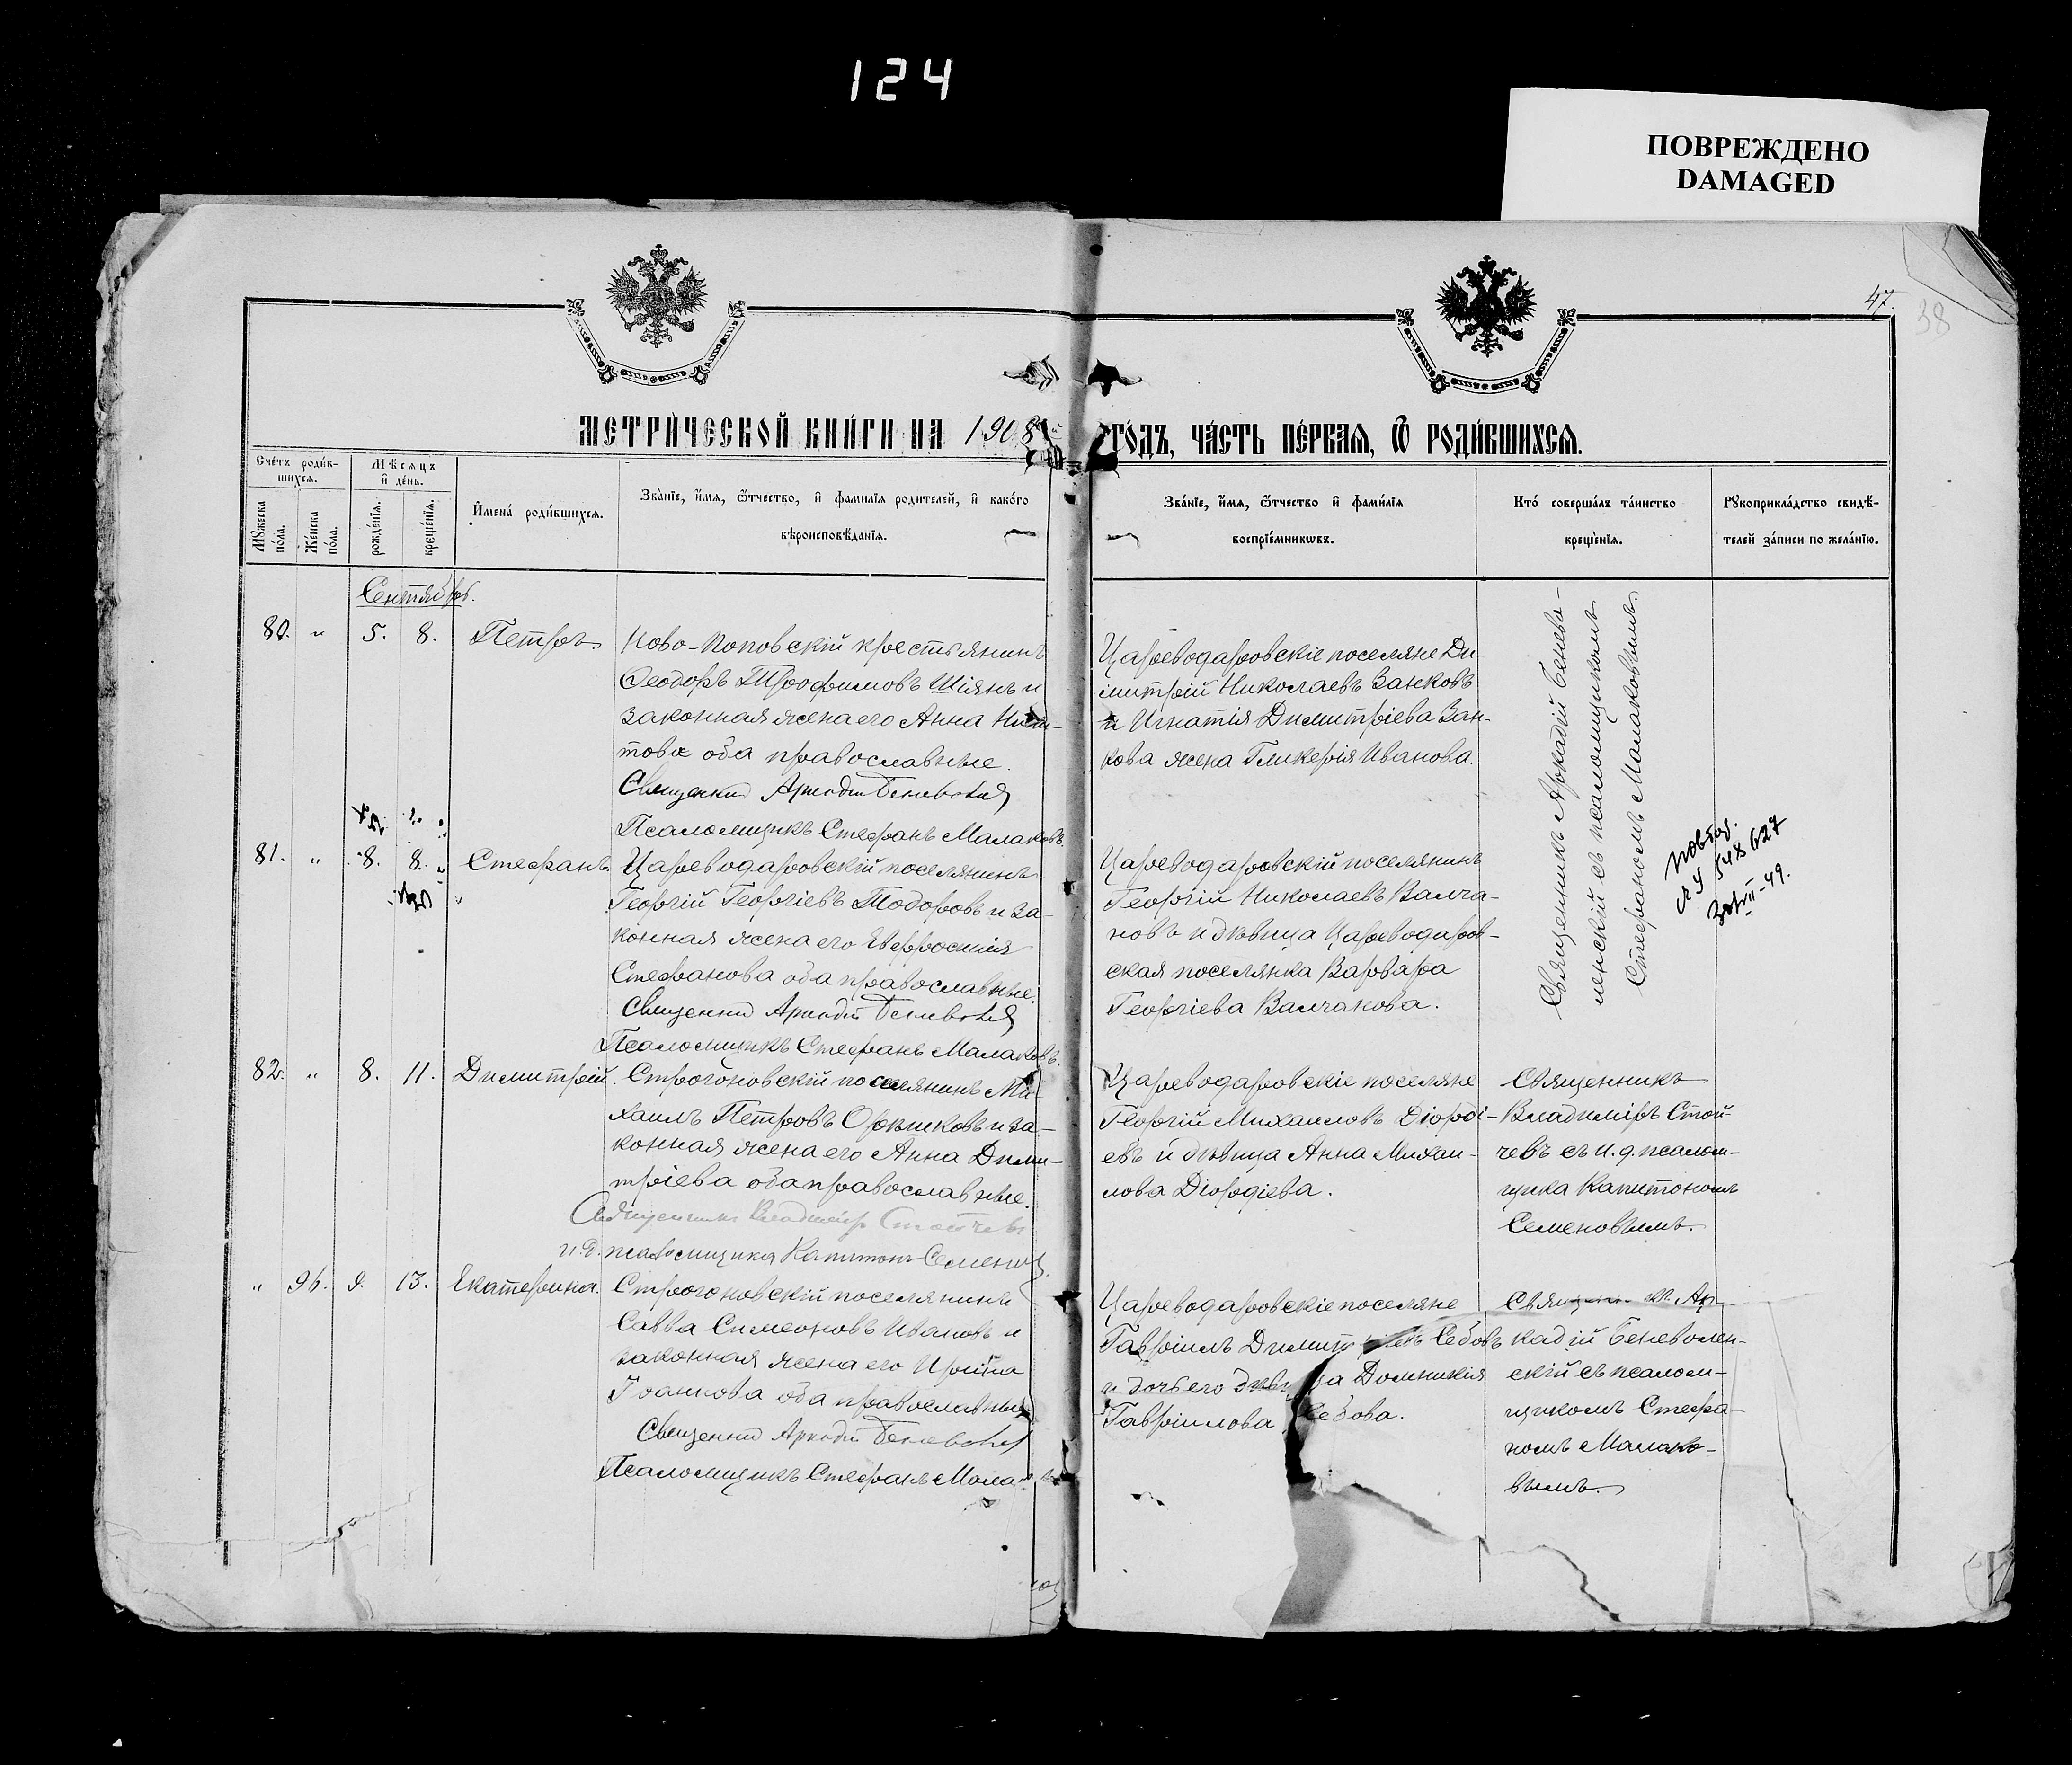 124
ПОВРЕЖДЕНО
DAMAGED
47.
38
МЕТРИ́ЧЕСКОЙ КНИ́ГИ НА 1908
ГО́ДЪ, ЧА́СТЬ ПЕ́РВАѦ, Ѿ РОДИ́ВШИХСѦ.
Сче́тъ роди́в-
шихсѧ.
Мѣ́сѧцъ
и҆ де́нь.
Мꙋ́жеска
по́ла.
Же́нска
по́ла.
рожде́нїѧ.
креще́нїѧ.
И҆мена́ роди́вшихсѧ.
Зва́нїе, и҆́мѧ, ѻ҆́тчество, и҆ фами́лїѧ роди́телей, и҆ како́го
вѣроисповѣ́данїѧ.
Зва́нїе, и҆́мѧ, ѻ҆́тчество и҆ фами́лїѧ
воспрїе́мникѡвъ.
Кто̀ соверша́лъ та́инство
креще́нїѧ.
Рꙋкоприкла́дство свидѣ́-
телей за́писи по жела́нїю.
Сентябрь.
80. " 5. 8. Петръ.
Ново-Поповскій крестьянинъ
Ѳеодоръ Трофимовъ Шіянъ и
законная жена его Анна Ники-
това оба православные.
Священник Аркадій Беневоленскій
Псаломщикъ Стефанъ Малаковъ.
Цареводаровскіе поселяне Ди-
митрій Николаевъ Занковъ
и Игнатія Димитріева Зан-
кова жена Гликерія Иванова.
Священникъ Аркадій Бенево-
ленскій съ псаломщикомъ
Стефаномъ Малаковымъ.
81. " 8. 8. Стефанъ.
Цареводаровскій поселянинъ
Георгій Георгіевъ Тодоровъ и за-
конная жена его Евфросинія
Стефанова оба православные.
Священник Аркадій Беневоленскій
Псаломщикъ Стефанъ Малаковъ.
Цареводаровскій поселянинъ
Георгій Николаевъ Валча-
новъ и дѣвица Цареводаров-
ская поселянка Варвара
Георгіева Валчанова.
548627
82. " 8. 11. Димитрій.
Строгоновскій поселянинъ Ми-
хаилъ Петровъ Орѣшковъ и за-
конная жена его Анна Дими-
тріева оба православные.
Священникъ Владиміръ Стойчевъ
и.д. псаломщика Капитонъ Семеновъ.
Цареводаровскіе поселяне
Георгій Михаиловъ Діорді-
евъ и дѣвица Анна Михаи-
лова Діордіева.
Священникъ
Владиміръ Стой-
чевъ съ и.д. псалом-
щика Капитономъ
Семеновымъ.
" 96. 9. 13. Екатерина.
Строгоновскій поселянинъ
Савва Симеоновъ Ивановъ и
законная жена его Ирина
Іоаннова оба православные
Священник Аркадій Беневоленскій
Псаломщикъ Стефанъ Мала
Цареводаровскіе поселяне
Гавріилъ Димит Себовъ
и дочь его Домникія
Гавріилова Себова.
Ар-
кадій Беневолен-
скій съ псалом-
щикомъ Стефа-
номъ Малако-
вымъ.